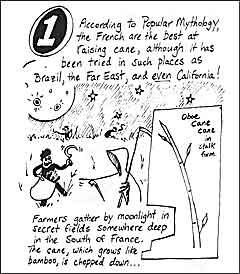 1
According to Popular Mythology,
the French are the best at
raising cane, although it has
been tried in such places as
Brazil, the Far East, and even California!
Oboe
Cane
cane
in
stalk
form
Farmers gather by moonlight in
secret fields somewhere deep
in the South of France.
The cane, which grows like
bamboo, is chopped down...